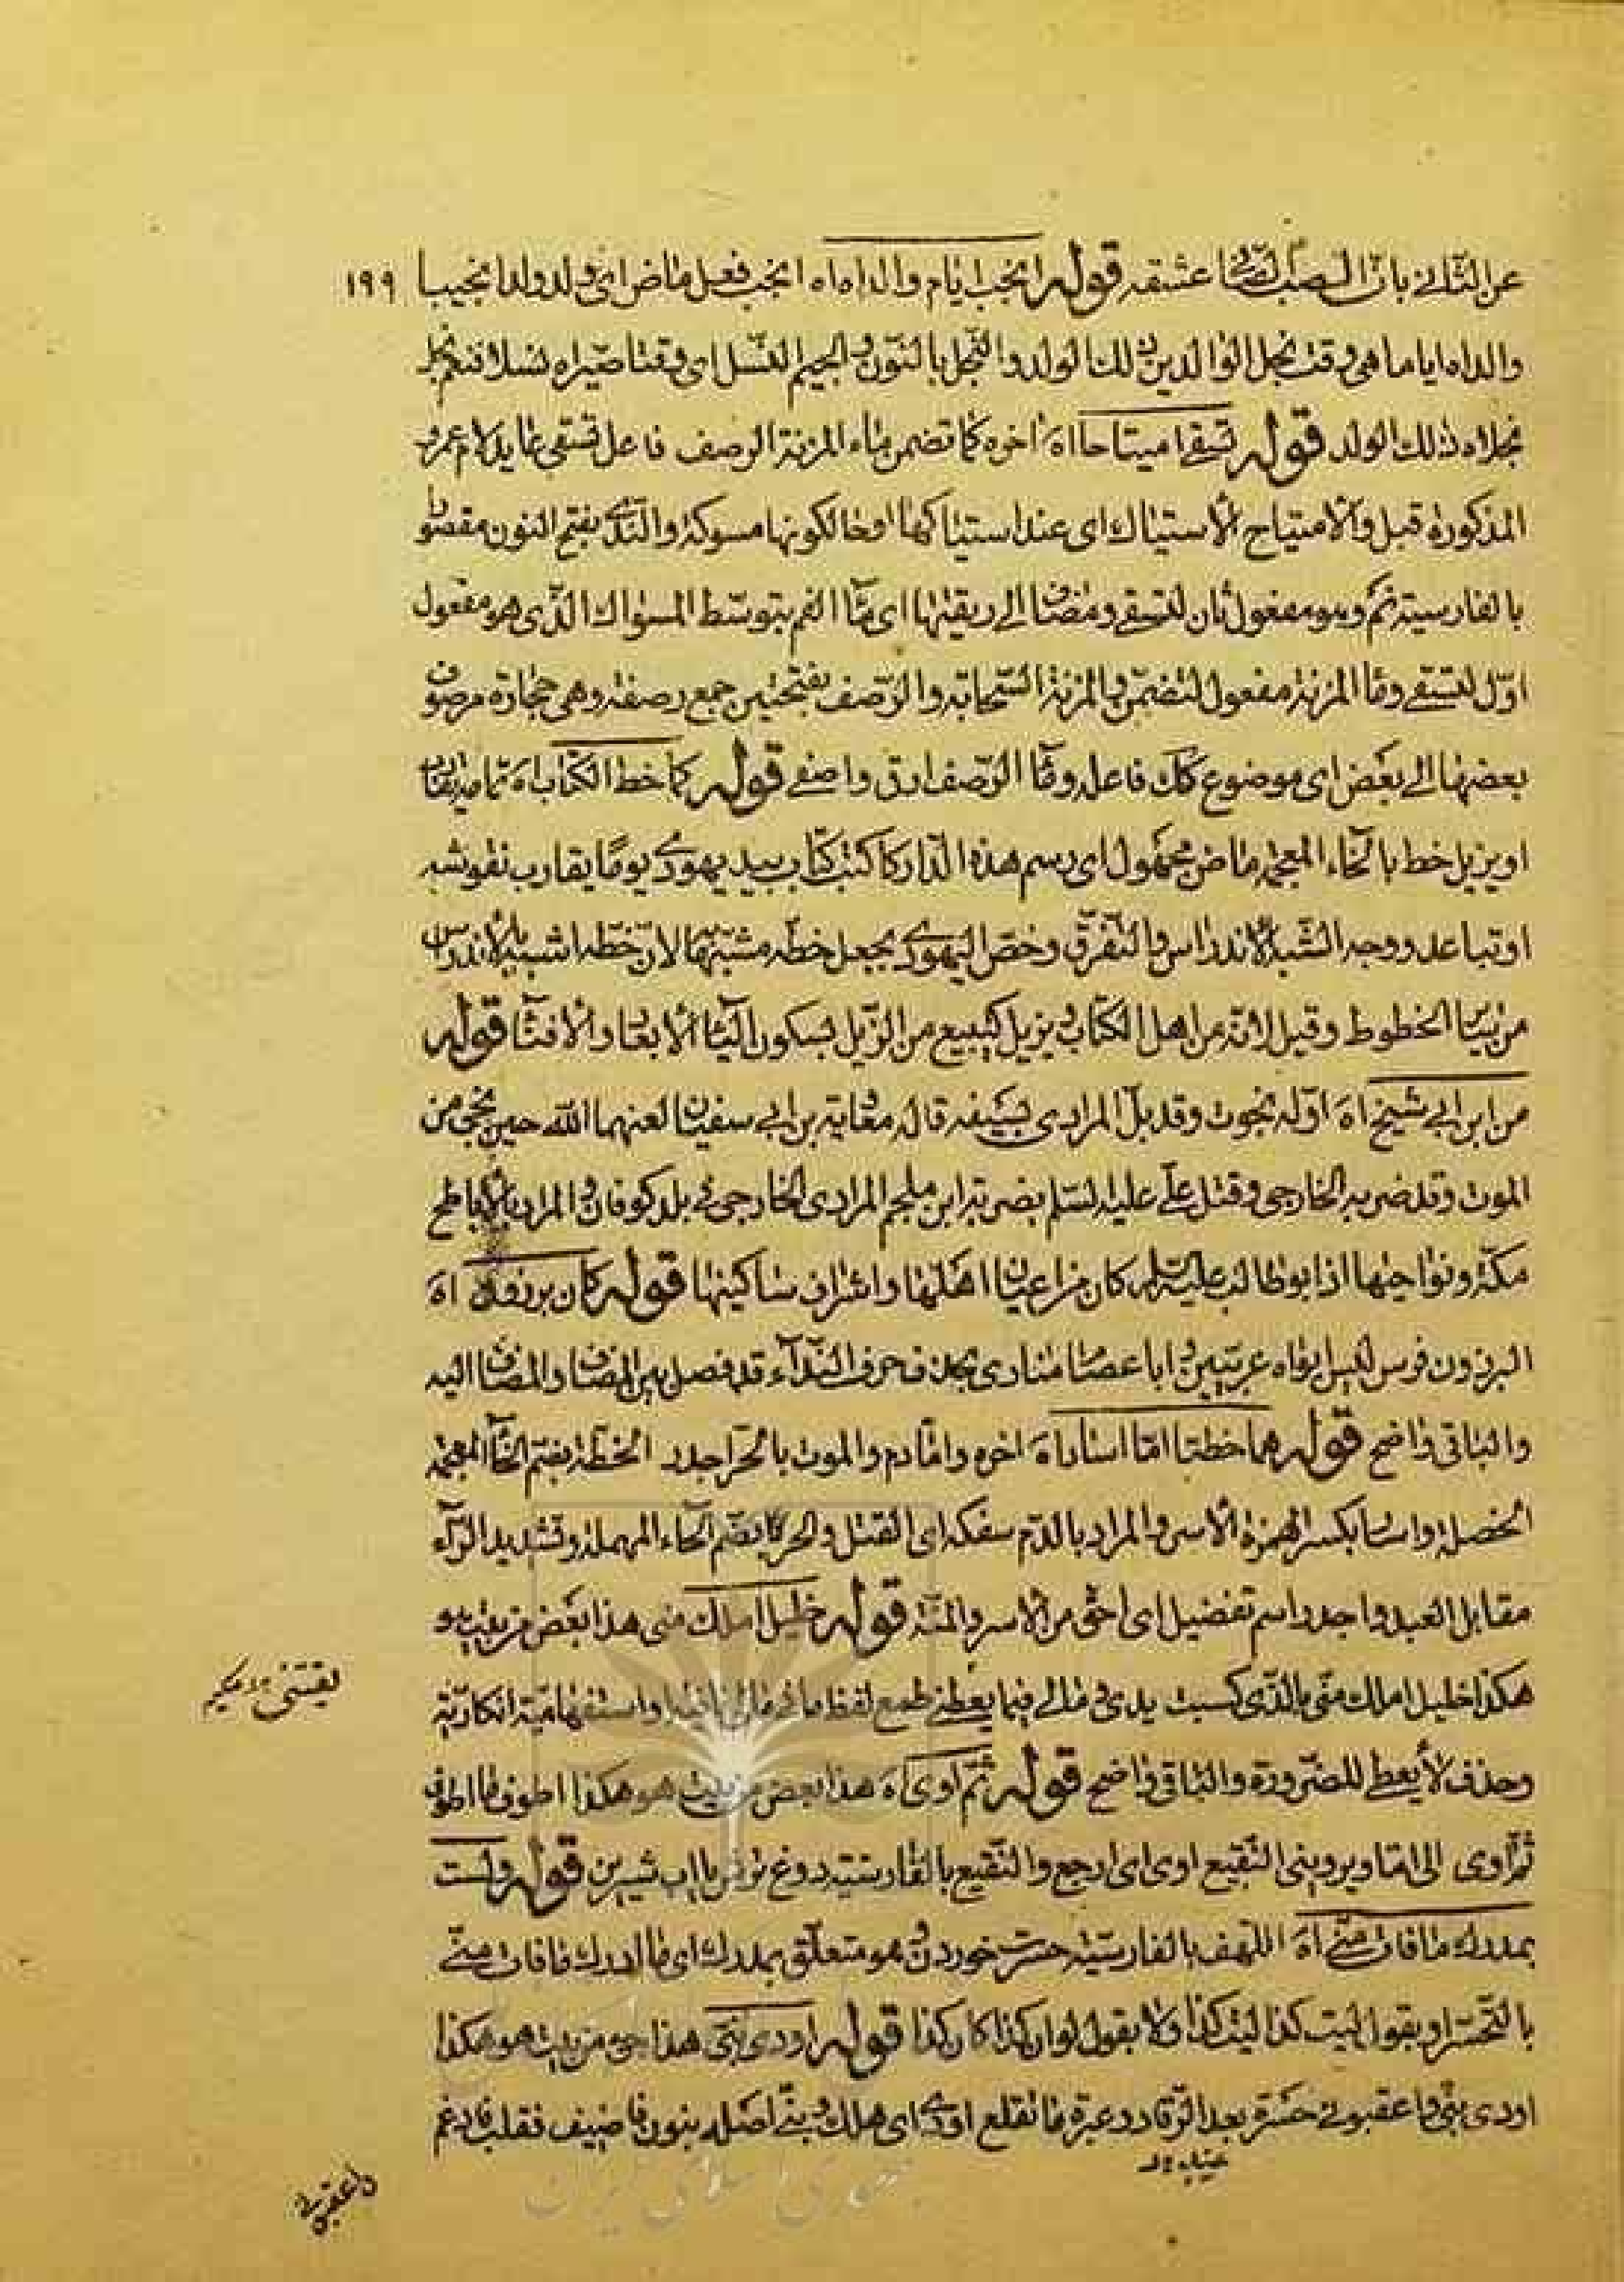 عن الثاني بان الصب عشقه قوله انجب ايام والداه اه انجب فعل ماض اى ولد ولدا نجيبا ١٩٩
والداه اياما هى وقت نجل الوالدين ذلك الولد والنجل بالنون والجيم النسل اى وقتا صيراه نسلا فنعم نجل
نجلاه ذلك الولد قوله تسقى امتياحا اه اخره كما تضمن ماء المزنة الرصف فاعل تسقى عمايد لام عمرو
المذكورة قبل والامتياح الاستياك اى عند استياكها او حالكونها مسوكة والندى بفتح النون مقصور
بالفارسية نم وهو مفعول ثان لتسقى ومضاف الى ريقتها اى ماء الفم بتوسط المسواك الذى هو مفعول
اول لتسقى وماء المزنة مفعول لتضمن والمزنة السحابة والرصف بفتحتين جمع رصفة وهى حجارة مرصوف
بعضها الى بعض اى موضوع كك فاعله وماء الرصف ارق واصفى قوله كما خط الكتاب اه تمامه يقارب
او يزيل خط بالخاء المعجمة ماض مجهول اى رسم هذه الدار كما كتب كتاب بيد يهودى يوما يقارب نقوشه
او تباعد ووجه الشبه الاندراس والتفرق وخص اليهودى بجعل خطه مشبها لان خطه اشبه بالاندراس
من سائر الخطوط وقيل لانه من اهل الكتاب ويزيل كيبيع من الزيل بسكون الياء الابعاد والافتا قوله
من ابن ابى شيخ اه اوله نجوت وقد بل المرادى سيفه قاله معاوية بن ابى سفيان لعنهما الله حين نجى من
الموت وقد ضربه الخارجى وقتل على عليه السلم بضربة ابن ملجم المرادى الخارجى فى بلد كوفان والمراد بالاباطح
مكة ونواحيها اذ ابوطالب عليه السلم كان من اعيان اهلها واشراف ساكنيها قوله كان برذون اه
البرذون فرس ليس ابواه عربيين وابا عصام منادى بحذف حرف النداء قد فصل بين المضاف والمضاف اليه
والباقى واضح قوله هما خطتا اما اسار اه اخره واما دم والموت بالحر اجدر الخطة بضم الخاء المعجمة
الخصلة واسار بكسر الهمزة الاسر والمراد بالدم سفكه اى القتل والحر بضم الحاء المهملة وتشديد الراء
مقابل العبد واجدر اسم تفضيل اى احق من الاسر والمنة قوله خليل املك منى هذا بعض من بيت هو
هكذا خليل املك منى بالذى كسبت يدى ومالى فيما يعطى طمع لفظ ما فى مالى نافية او استفهامية انكارية
وحذف لا يعطى للضرورة والباقى واضح قوله ثم اوى اه هذا بعض من بيت هو هكذا اطوف ما اطوف
ثم اوى الى اما ويروينى النقيع اوى اى ارجع والنقيع بالفارسية دوغ باآب شيرين قوله ولست
بمدرك ما فات منى اه اللهف بالفارسية حسرت خوردن هو متعلق بمدرك اى ما ادرك ما فات منى
بالتحسر او بقول ليت كذا ليت كذا ولا بقول لو ان كذا كان كذا قوله اودى بنى هذا جزء من بيت هو هكذا
اودى بنى واعقبونى حسرة بعد الرقاد وعبرة ما تقلع اودى اى هلك وبنى اصله بنون فاضيف فقلب فادغم
واعقبونى